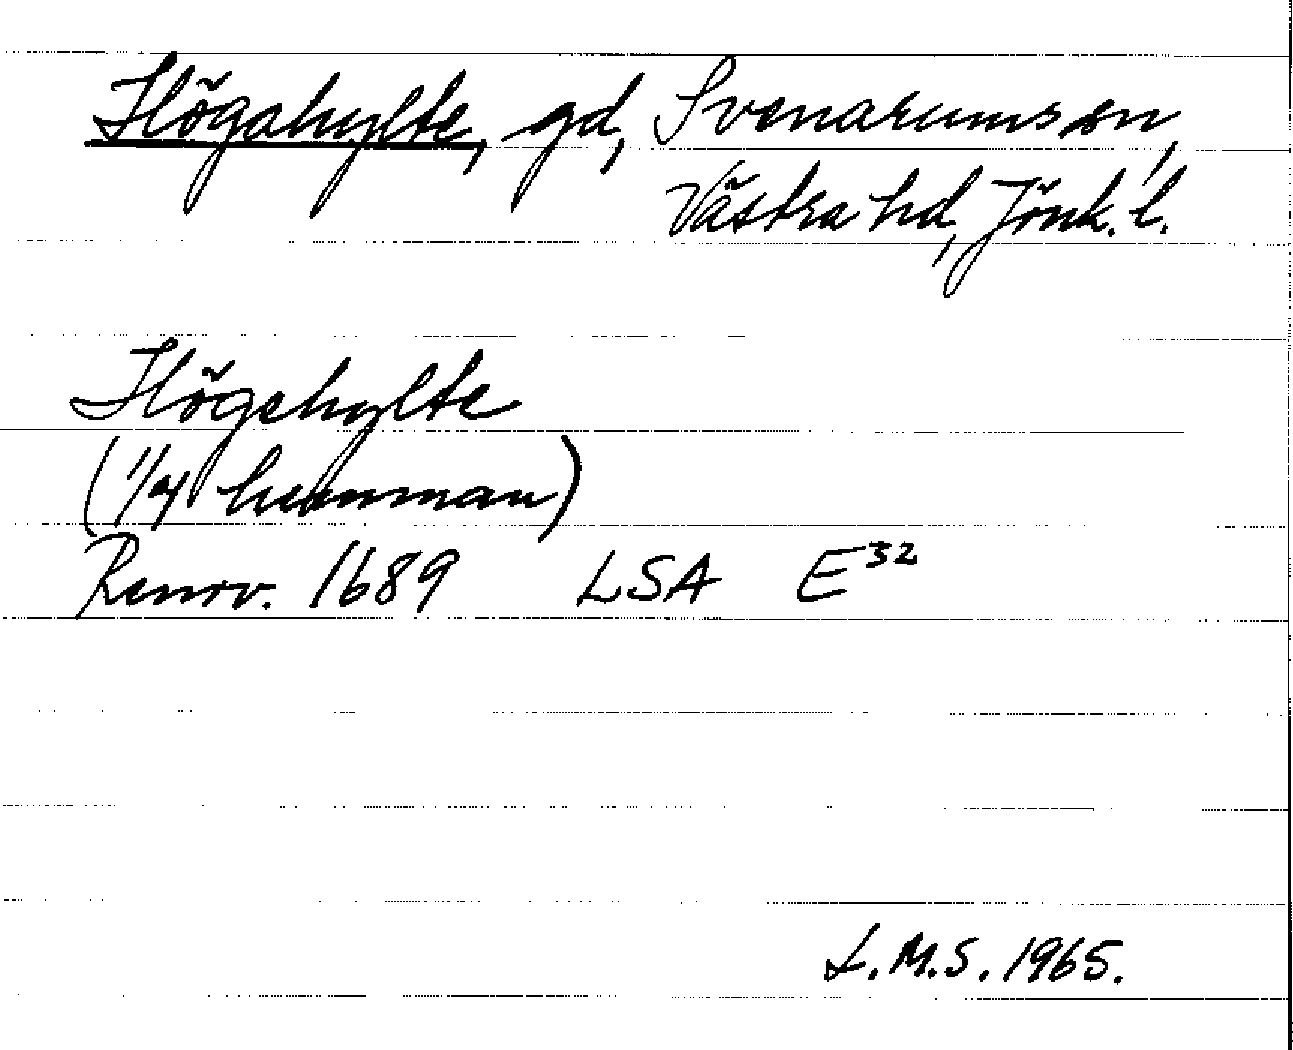 Högahylte, gd, Svenarums sn,
Västra hd, Jönk. l.
Högehylte
(1/4 hemman)
Renov. 1689 LSA E³²
L.M.S. 1965.